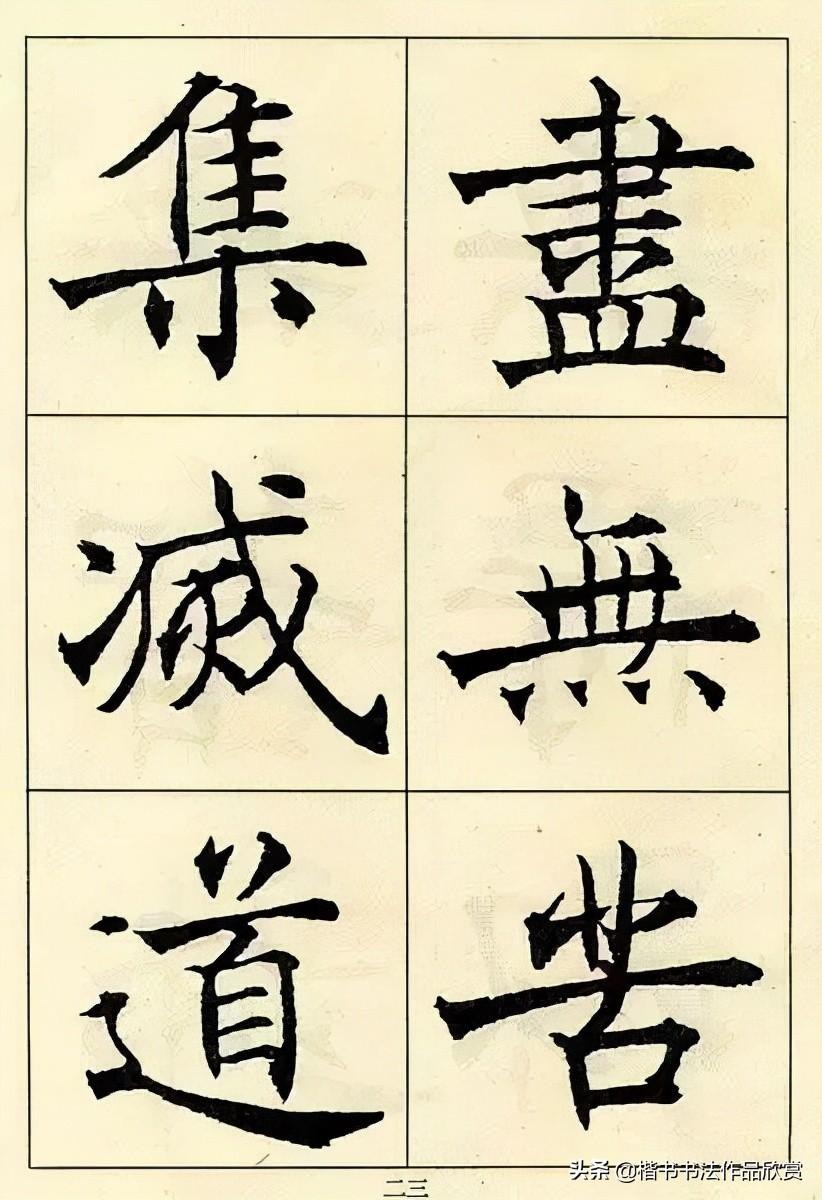 盡無苦
集滅道
二三
头条 @楷书书法作品欣赏